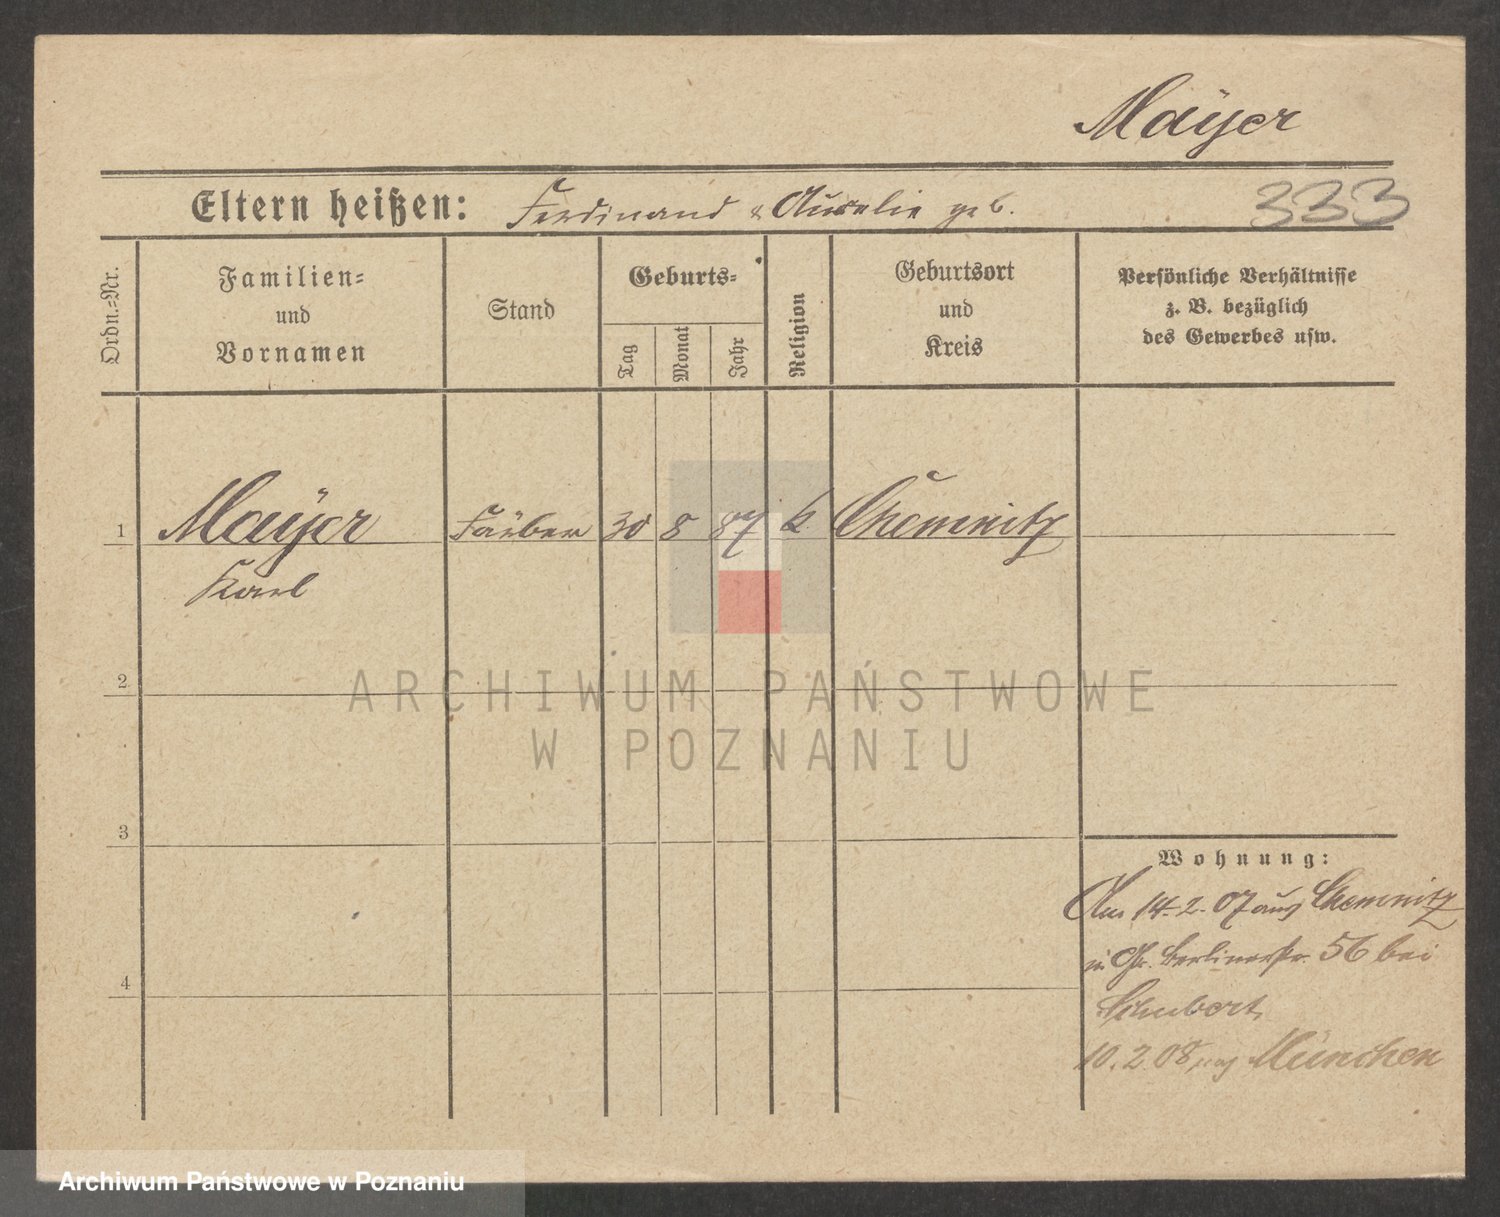 Mayer
Eltern heißen: Ferdinand & Aurelie geb.
333
Ordn.=Nr.
Familien=
und
Vornamen
Stand
Geburts=
Tag
Monat
Jahr
Religion
Geburtsort
und
Kreis
Persönliche Verhältnisse
z. B. bezüglich
des Gewerbes usw.
1 Mayer Färber 30 8 87 k. Chemnitz
Karl
2
3
4
Wohnung:
Am 14.2.07 aus Chemnitz
in Gr. Berlinerstr. 56 bei
Schubert.
10.2.08 nach München
ARCHIWUM PAŃSTWOWE
W POZNANIU
Archiwum Państwowe w Poznaniu